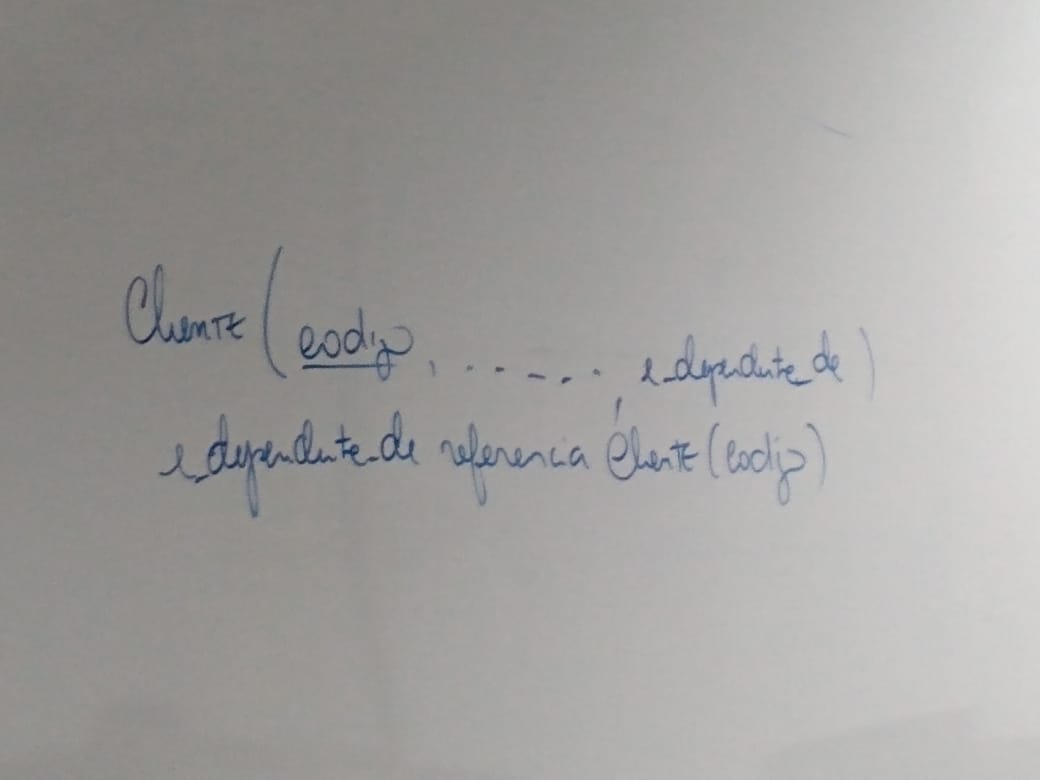 Cliente (codigo, ....... e_dependente_de)
e_dependente_de referencia Cliente (codigo)